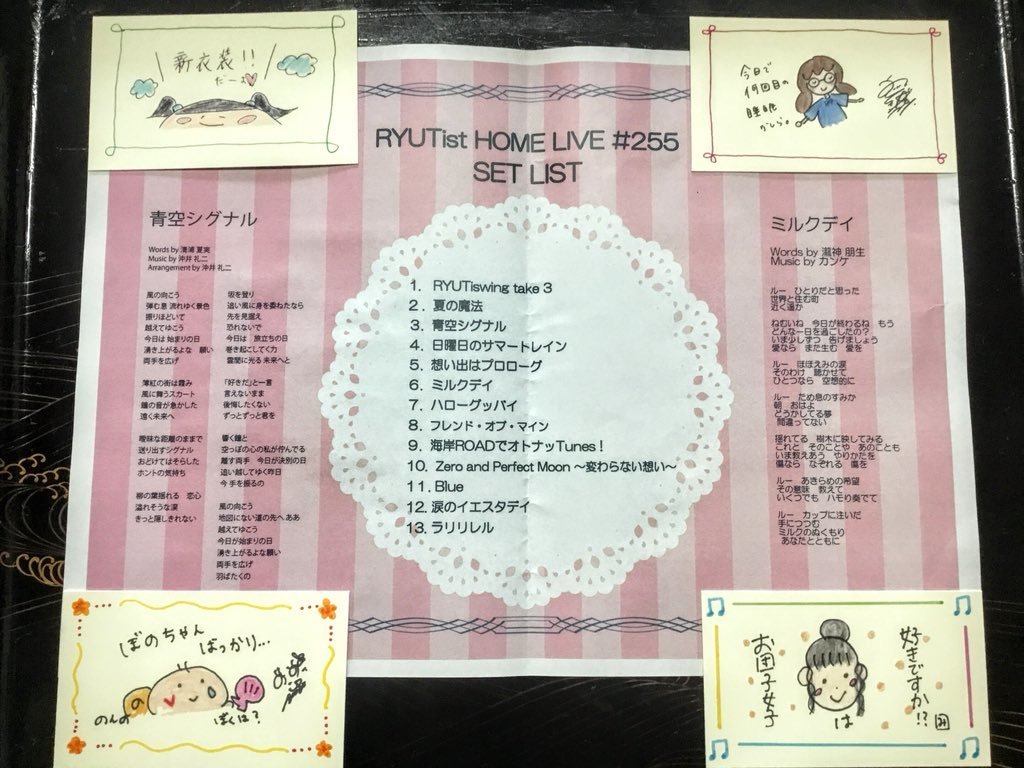 新衣装!!
だーょ
今日で
何回目の
睡眠
かしら。
RYUTist HOME LIVE #255
SET LIST
青空シグナル
Words by 清浦 夏実
Music by 沖井 礼二
Arrangement by 沖井 礼二
風の向こう
弾む息 流れゆく景色
振りほどいて
越えてゆこう
今日は 始まりの日
湧き上がるよな 願い
両手を広げ
薄紅の街は霞み
風に舞うスカート
鐘の音が急かした
遠く未来へ
曖昧な距離のままで
送り出すシグナル
おどけてはそらした
ホントの気持ち
柳の葉揺れる 恋心
溢れそうな涙
きっと隠しきれない
坂を登り
追い風に身を委ねたなら
先を見据え
恐れないで
今日は 旅立ちの日
巻き起こしてく力
雲間に光る 未来へと
「好きだ」と一言
言えないまま
後悔したくない
ずっとずっと君を
響く鐘と
空っぽの心の私が佇んでる
離す両手 今日が決別の日
追い越してゆく昨日
今 手を振るの
風の向こう
地図にない道の先へ ああ
越えてゆこう
今日が始まりの日
湧き上がるよな願い
両手を広げ
羽ばたくの
1. RYUTiswing take 3
2. 夏の魔法
3. 青空シグナル
4. 日曜日のサマートレイン
5. 想い出はプロローグ
6. ミルクデイ
7. ハローグッバイ
8. フレンド・オブ・マイン
9. 海岸ROADでオトナッTunes!
10. Zero and Perfect Moon ～変わらない想い～
11. Blue
12. 涙のイエスタデイ
13. ラリリレル
ミルクデイ
Words by 瀧神 朋生
Music by カンケ
ルー ひとりだと思った
世界と住む町
近く遥か
ねむいね 今日が終わるね もう
どんな一日を過ごしたの？
いま少しずつ 告げましょう
愛なら また生む 愛を
ルー ほほえみの涙
そのわけ 聴かせて
ひとつなら 空想的に
ルー ため息のすみか
朝 おはよ
どうかしてる夢
間違ってない
揺れてる 樹木に映してみる
これと そのことや あのことも
いま教えあう やりかたを
傷なら なぞれる 傷を
ルー あきらめの希望
その意味 教えて
いくつでも ハモり奏でて
ルー カップに注いだ
手につつむ
ミルクのぬくもり
あなたとともに
ぼのちゃん
ばっかり...
のんの
ぼくは?
お団子女子
は
好きですか!?